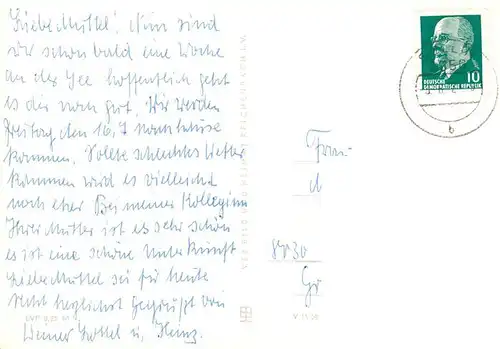 Liebe Muttel! Nun sind
wir schon bald eine Woche
an der See hoffentlich geht
es dir noch gut. Wir werden
Freitag, den 16.7 nach Hause
kommen. Sollte schlechtes Wetter
kommen wird es vielleicht
noch eher. Bei meiner Kollegin
Ihrer Mutter ist es sehr schön
es ist eine schöne Unterkunft
Liebe Muttel sei für heute
recht herzlichst Gegrüßt von
Deiner u. Heinz.
EVP 0,20 M
VEB BILD UND HEIMAT REICHENBACH I. V.
V 11 28
Frau
DEUTSCHE
DEMOKRATISCHE REPUBLIK
10
b